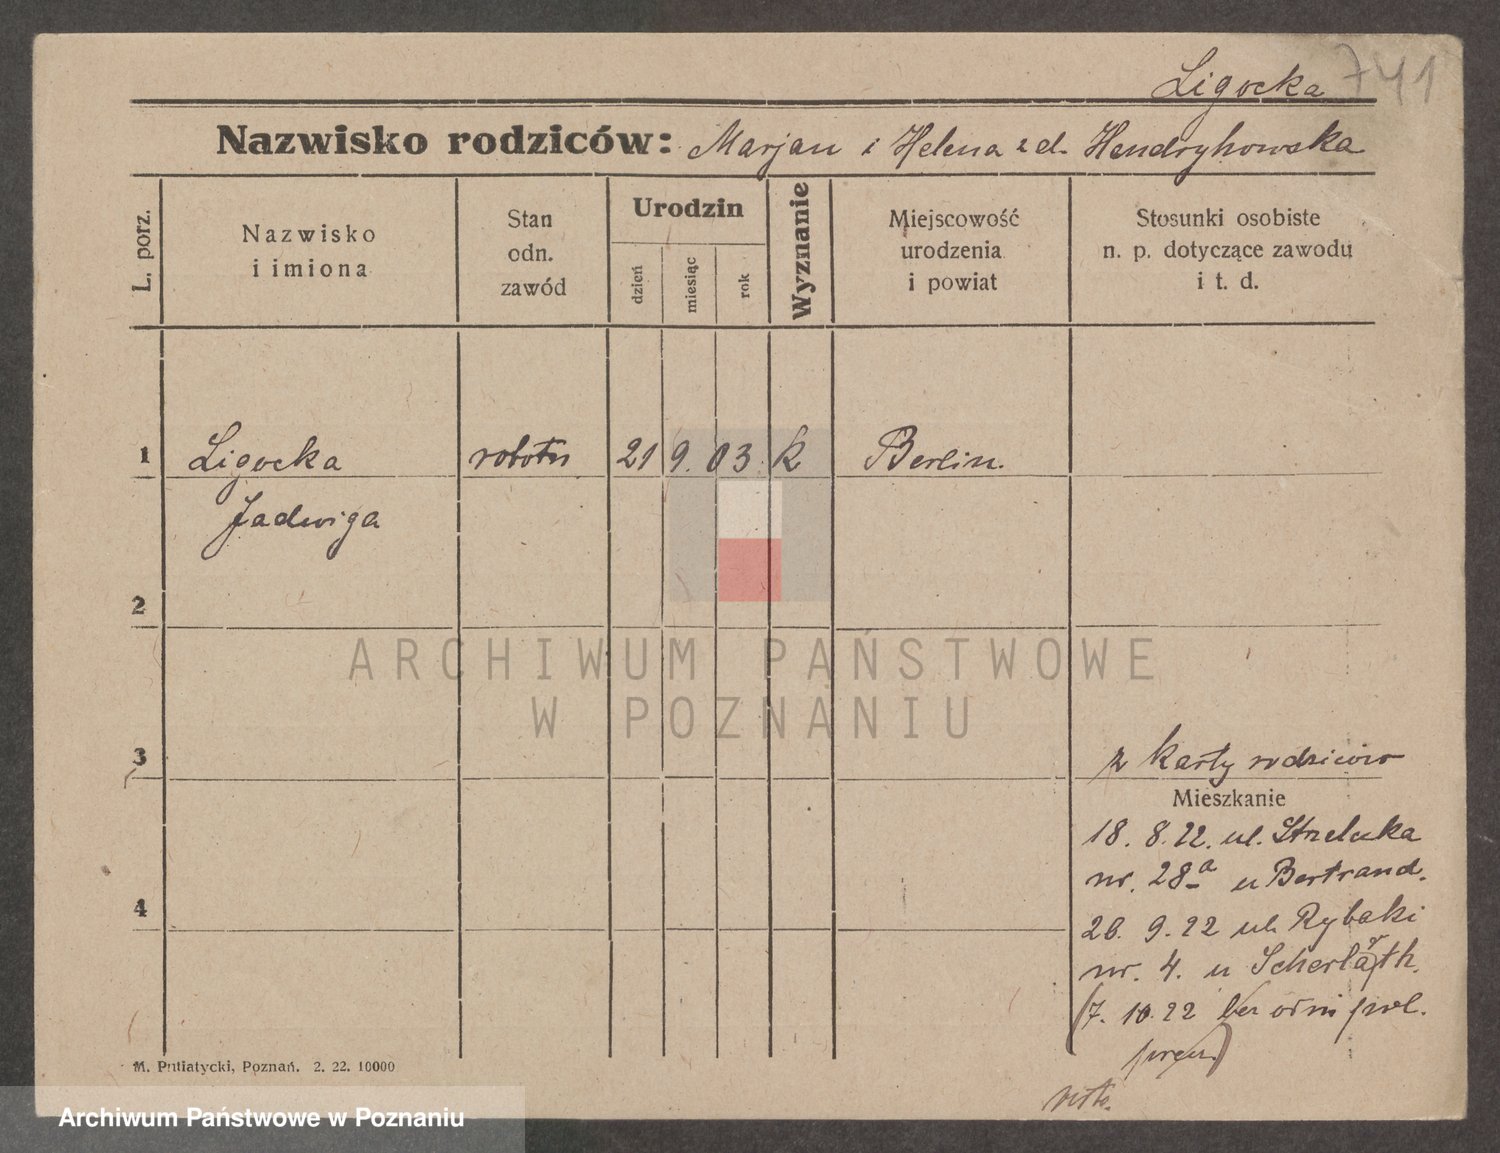 Ligocka 741
Nazwisko rodziców: Marjan i Helena z d. Hendrykowska
L. porz.
Nazwisko
i imiona
Stan
odn.
zawód
Urodzin
dzień
miesiąc
rok
Wyznanie
Miejscowość
urodzenia
i powiat
Stosunki osobiste
n. p. dotyczące zawodu
i t. d.
1 Ligocka robotn 21 9. 03. k Berlin.
Jadwiga
2
ARCHIWUM PAŃSTWOWE
W POZNANIU
3 z karty rodziców
Mieszkanie
18. 8. 22. ul. Strzelecka
nr. 28a u Bertrand.
4
26. 9. 22 ul. Rybaki
nr. 4. u
(7. 10. 22 bez
M. Putiatycki, Poznań. 2. 22. 10000
Archiwum Państwowe w Poznaniu